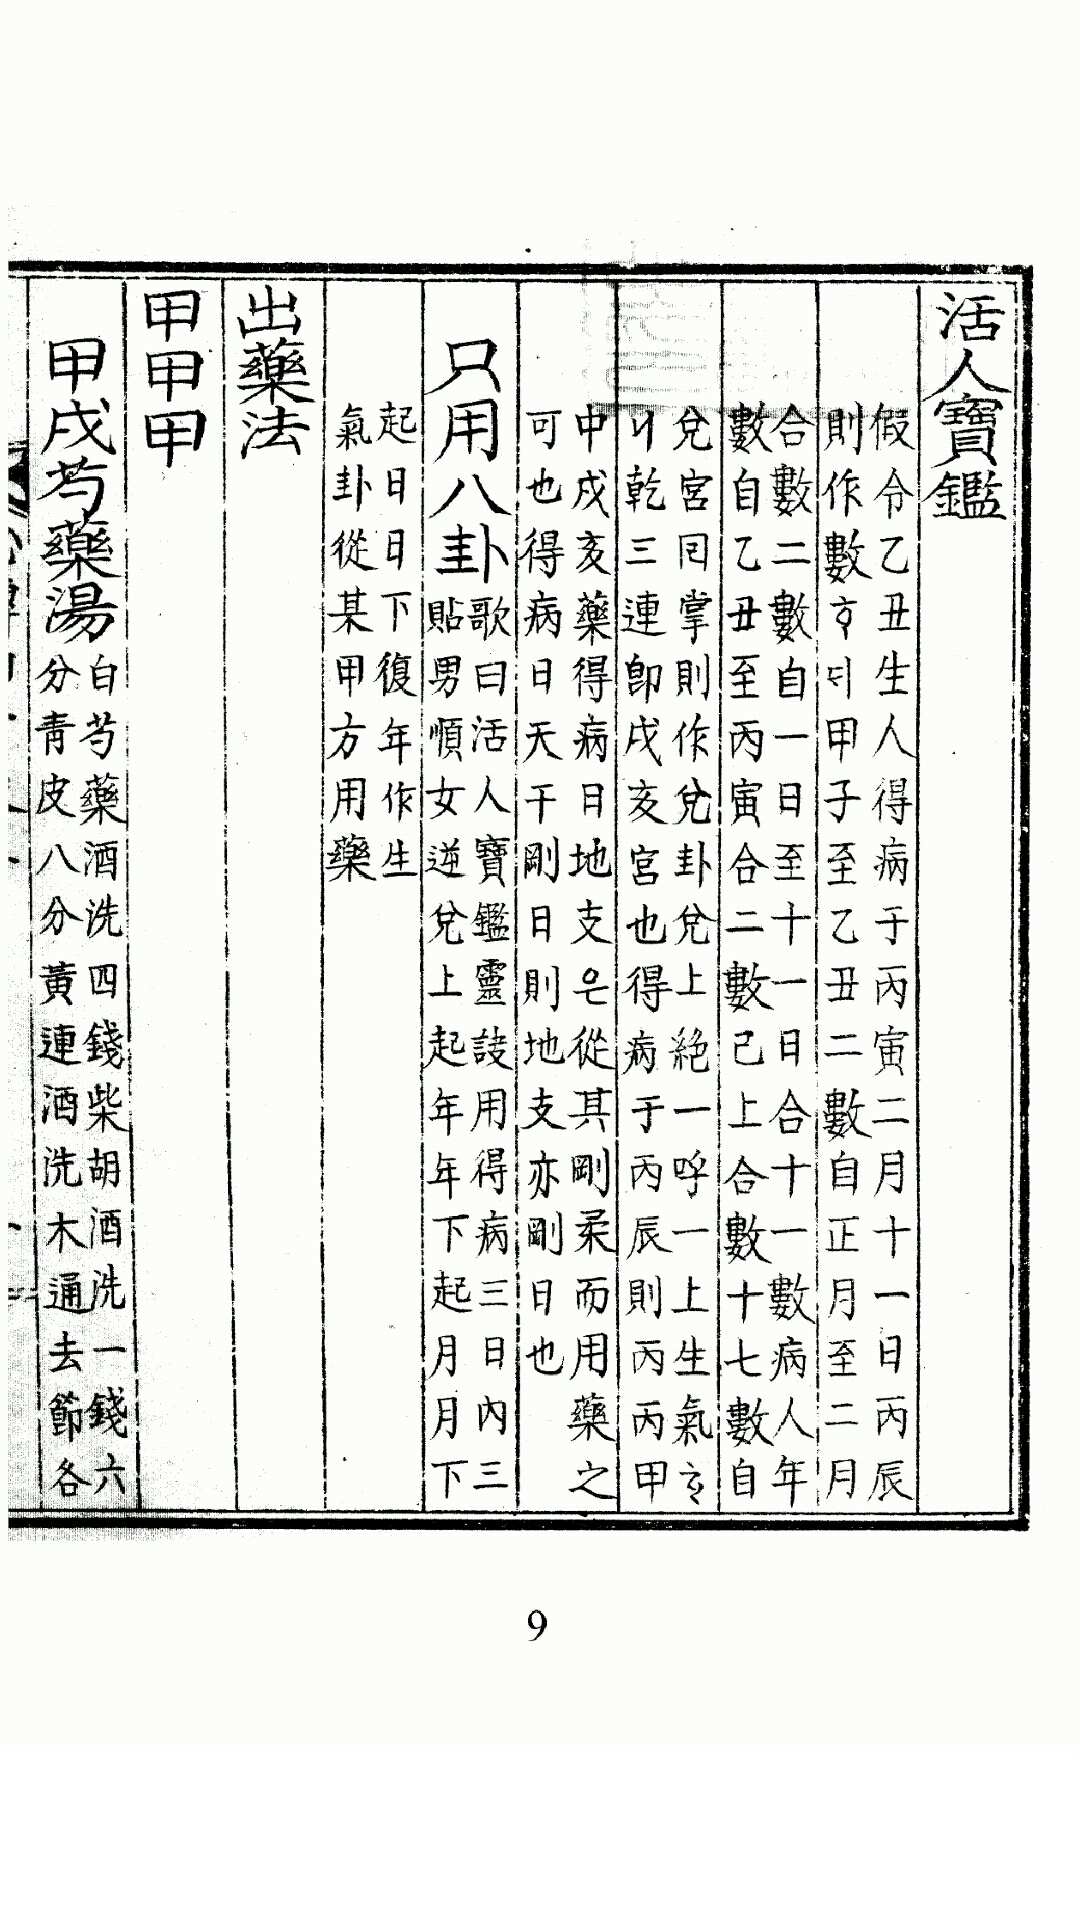 活人寶鑑
假令乙丑生人得病于丙寅二月十一日丙辰
則作數ᄒᆞ되甲子至乙丑二數自正月至二月
合數二數自一日至十一日合十一數病人年
數自乙丑至丙寅合二數已上合數十七數自
兌宮囘掌則作兌卦兌上絶一呼一上生氣ᄒᆞ
니乾三連卽戌亥宮也得病于丙辰則丙丙甲
中戌亥藥得病日地支은從其剛柔而用藥之
可也得病日天干剛日則地支亦剛日也
只用八卦
歌曰活人寶鑑靈詼用得病三日內三
貼男順女逆兌上起年年下起月月下
起日日下復年作生
氣卦從某甲方用藥
出藥法
甲甲甲
甲戌芍藥湯
白芍藥酒洗四錢柴胡酒洗一錢六
分青皮八分黃連酒洗木通去節各
9